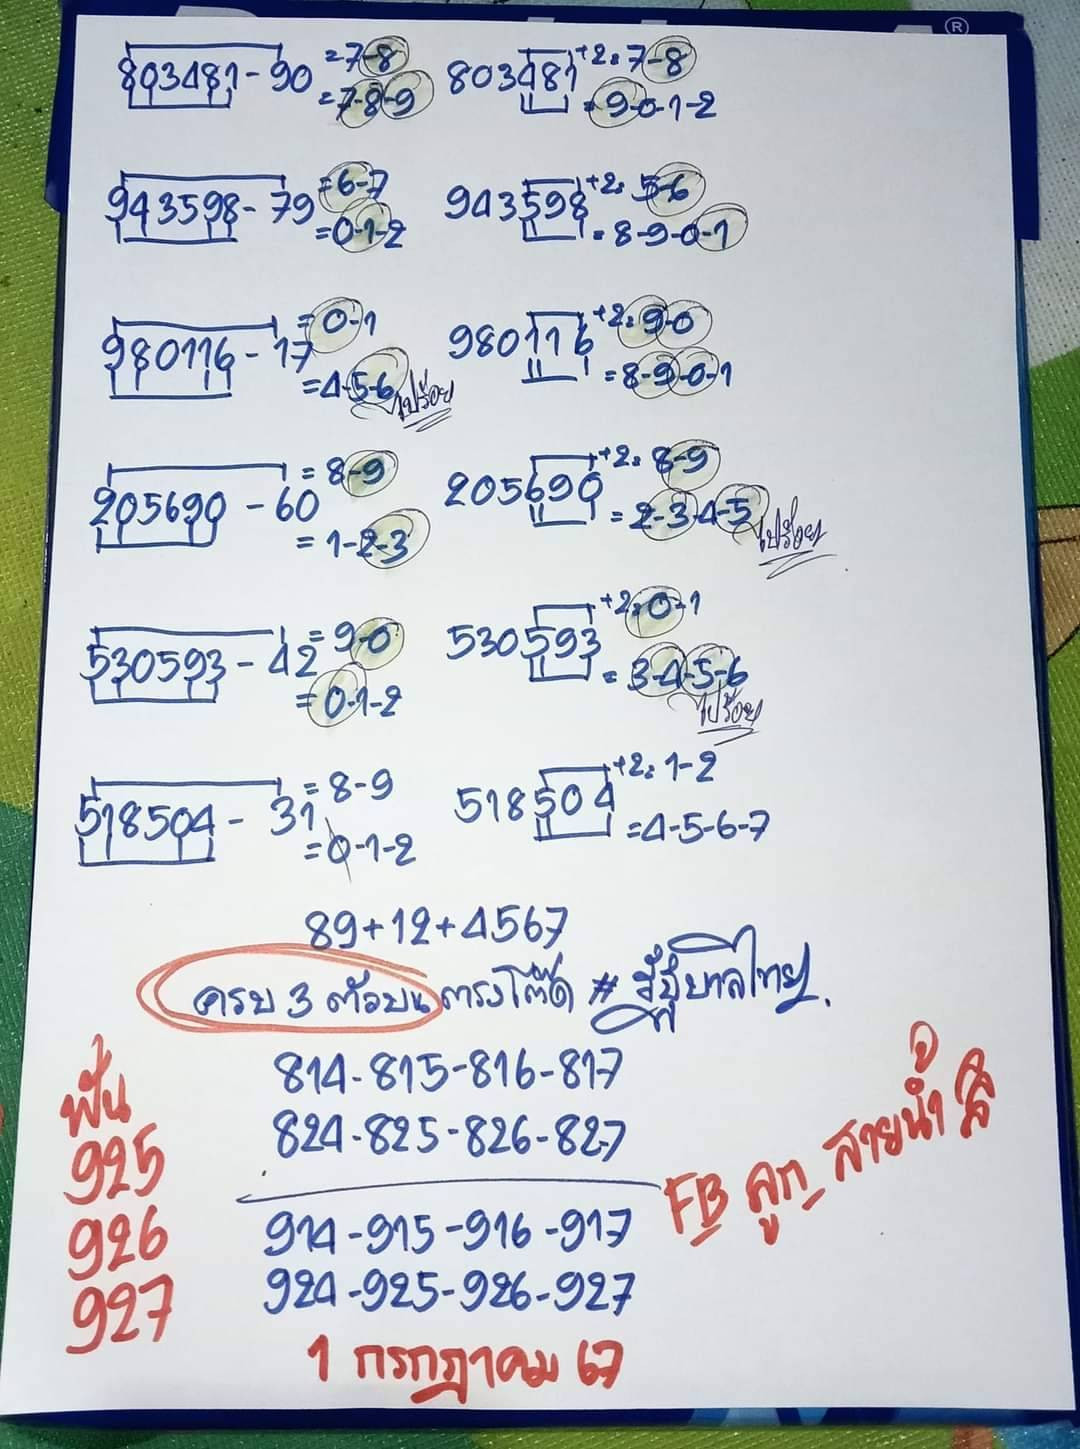 ®
803481-90 =7-8 803481 +2=7-8
=7-8-9 =9-0-1-2
943598-79 =6-7 943598 +2=5-6
=0-1-2 =8-9-0-1
980116-17 =0-1 980116 +2=9-0
=4-5-6 =8-9-0-1
ไปร้อย
205690-60 =8-9 205690 +2=8-9
=1-2-3 =2-3-4-5
ไปร้อย
530593-42 =9-0 530593 +2=0-1
=0-1-2 =3-4-5-6
ไปร้อย
518504-31 =8-9 518504 +2=1-2
=0-1-2 =4-5-6-7
89+12+4567
ครบ 3 ตัวบน ตรงโต๊ด #
814-815-816-817
824-825-826-827
914-915-916-917
924-925-926-927
ฟัน
925
926
927
FB ลูก_สายน้ำ
1 กรกฎาคม 67